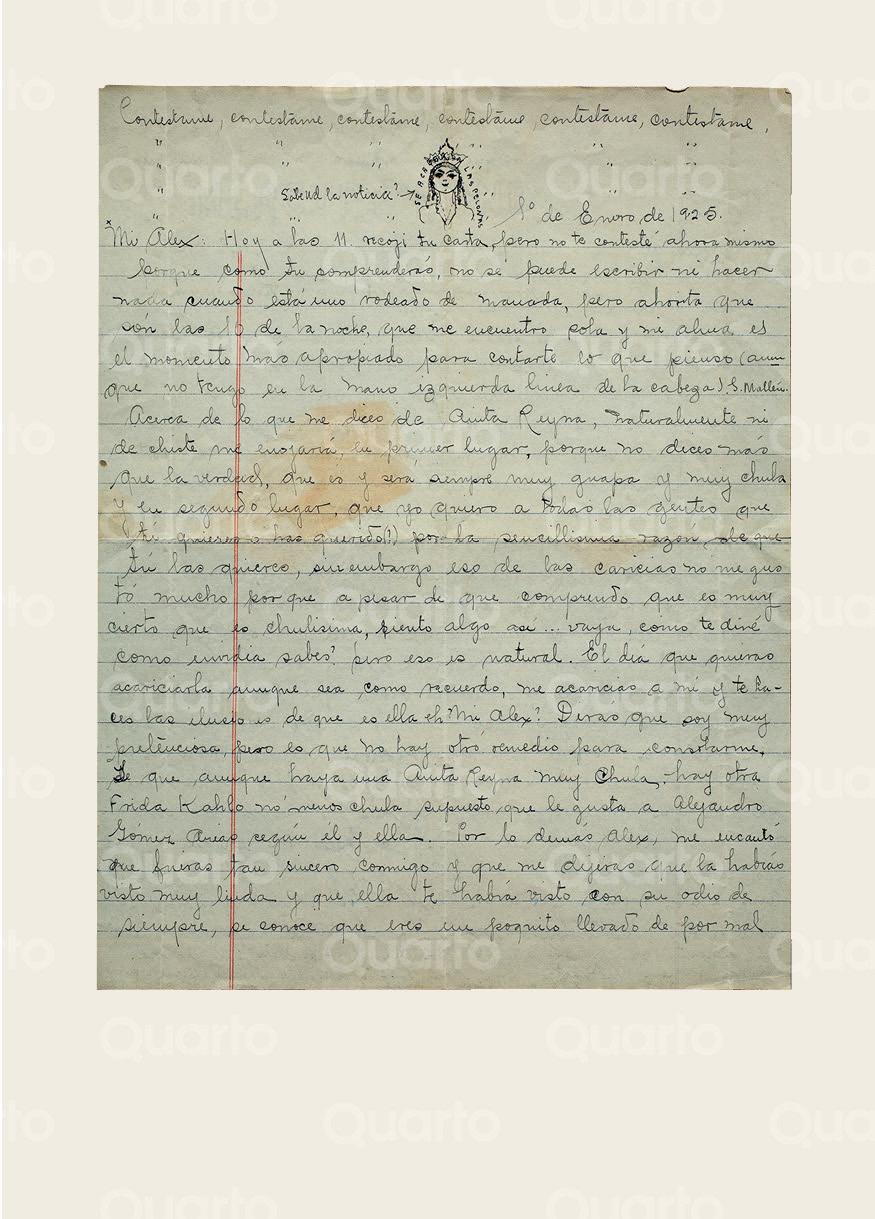 Contestame, contestame, contestame, contestame, contestame, contestame,
" " " " "
" " " " "
Sabe Ud la noticia? SE ACABARON LAS PELONAS
1º de Enero de 1925.
Mi Alex: Hoy a las 11. recoji tu carta, pero no te contesté ahora mismo
porque como tu comprenderás, no se puede escribir ni hacer
nada cuando está uno rodeado de manada, pero ahorita que
son las 10 de la noche, que me encuentro sola y mi alma es
el momento más apropiado para contarte lo que pienso (aun
que no tengo en la mano izquierda linea de la cabeza) S. Mallén.
Acerca de lo que me dices de Anita Reyna, naturalmente ni
de chiste me enojaría, en primer lugar, porque no dices más
que la verdad, que es y será siempre muy guapa y muy chula
y en segundo lugar, que yo quiero a todas las gentes que
tú quieres o has querido(?) por la sencillisima razón, de que
tú las quieres, sin embargo eso de las caricias no me gus
tó mucho porque a pesar de que comprendo que es muy
cierto que es chulisima, siento algo asi... vaya, como te diré
como envidia sabes? pero eso es natural. El día que quieras
acariciarla aunque sea como recuerdo, me acaricias a mi y te ha-
ces las ilusiones de que es ella eh? Mi Alex? Dirás que soy muy
pretenciosa pero es que no hay otro remedio para consolarme,
Se que aunque haya una Anita Reyna muy Chula, hay otra
Frida Kahlo no menos chula supuesto que le gusta a Alejandro
Gómez Arias según él y ella. Por lo demás Alex, me encantó
que fueras tan sincero conmigo y que me dijeras que la habías
visto muy linda y que ella te había visto con su odio de
siempre, se conoce que eres un poquito llevado de por mal